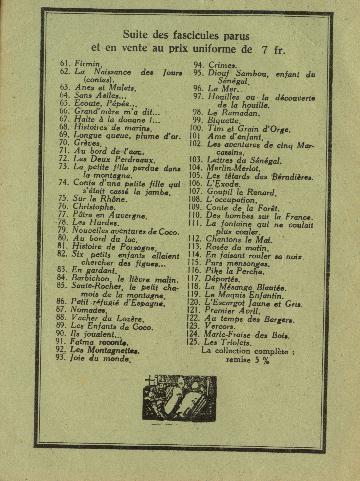 Suite des fascicules parus
et en vente au prix uniforme de 7 fr.
61. Firmin.
62. La Naissance des Jours
(contes).
63. Anes et Mulets.
64. Sans Ailes...
65. Ecoute, Pépée...
66. Grand'mère m'a dit...
67. Halte à la douane !...
68. Histoires de marins.
69. Longue queue, plume d'or.
70. Grèves.
71. Au bord de l'eau.
72. Les Deux Perdreaux.
73. La petite fille perdue dans
la montagne.
74. Conte d'une petite fille qui
s'était cassé la jambe.
75. Sur le Rhône.
76. Christophe.
77. Pâtre en Auvergne.
78. Les Hurdes.
79. Nouvelles aventures de Coco.
80. Au bord du lac.
81. Histoire de Poisogne.
82. Six petits enfants allaient
chercher des figues...
83. En gardant.
84. Barbichon, le lièvre malin.
85. Saute-Rocher, le petit cha-
mois de la montagne.
86. Petit réfugié d'Espagne.
87. Nomades.
88. Vacher du Lozère.
89. Les Enfants de Coco.
90. Ils jouaient...
91. Fatma raconte.
92. Les Montagnettes.
93. Joie du monde.
94. Crimes.
95. Diouf Sambou, enfant du
Sénégal.
96. La Mer.
97. Houilles ou la découverte
de la houille.
98. Le Ramadan.
99. Biquette.
100. Tim et Grain d'Orge.
101. Ame d'enfant.
102. Les aventures de cinq Mar-
cassins.
103. Lettres du Sénégal.
104. Merlin-Merlot.
105. Les têtards des Béradières.
106. L'Exode.
107. Goupil le Renard.
108. L'occupation.
109. Conte de la Forêt.
110. Des hombes sur la France.
111. La fontaine qui ne coulait
plus couler.
112. Chantons le Mai.
113. Rosée du matin.
114. En faisant rouler sa noix
115. Purs mensonges.
116. Pike la Perche.
117. Déportés.
118. La Mésange Bleutée.
119. Le Maquis Enfantin.
120. L'Escargot Jaune et Gris.
121. Premier Avril.
122. Au temps des Bergers.
123. Vercors.
124. Marle-Fraise des Bois.
125. Les Triolets.
La collection complète :
remise 5 %